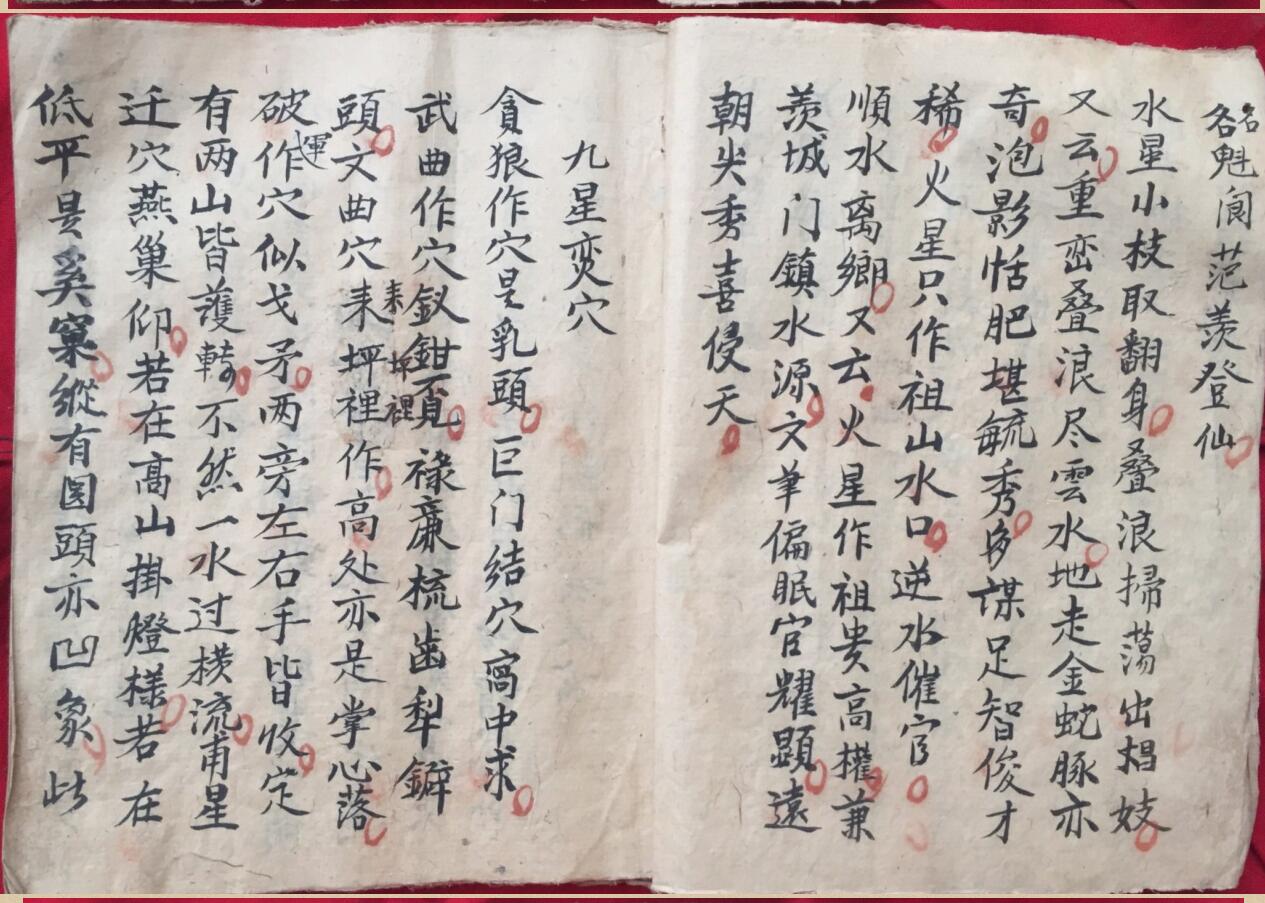 名魁阆范羡登仙
水星小枝取翻身叠浪掃蕩出娼妓
又云重峦叠浪尽雲水地走金蛇豚亦
奇泡影恬肥堪毓秀多謀足智俊才
稀火星只作祖山水口逆水催官
順水离鄉又云火星作祖贵高權兼
羡城门鎮水源文筆偏眠官耀顕遠
朝尖秀喜侵天
九星变穴
貪狼作穴是乳頭巨门结穴窩中求
武曲作穴釵鉗覓禄廉梳齒犁鐴
頭文曲穴来坪裡作高处亦是掌心落
来坪裡
破軍作穴似戈矛两旁左右手皆收定
有两山皆護轉不然一水过横流甫星
迁穴燕巢仰若在高山掛燈樣若在
低平是奚窠縱有圆頭亦凹象此